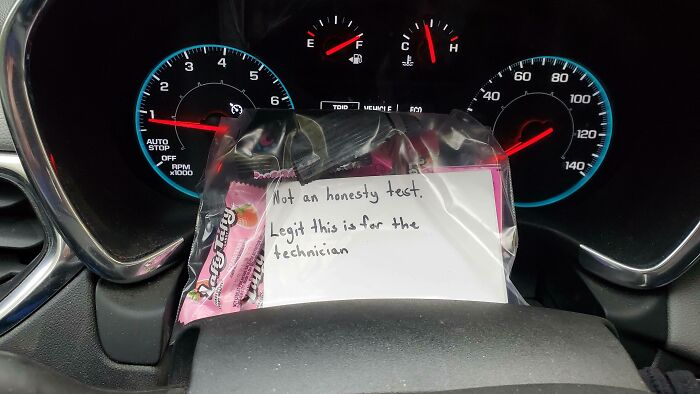 E F
C H
1 2 3 4 5 6
AUTO
STOP
OFF
RPM
x1000
TRIP VEHICLE ECO
40 60 80 100 120 140
Not an honesty test.
Legit this is for the
technician
Laffy Taffy